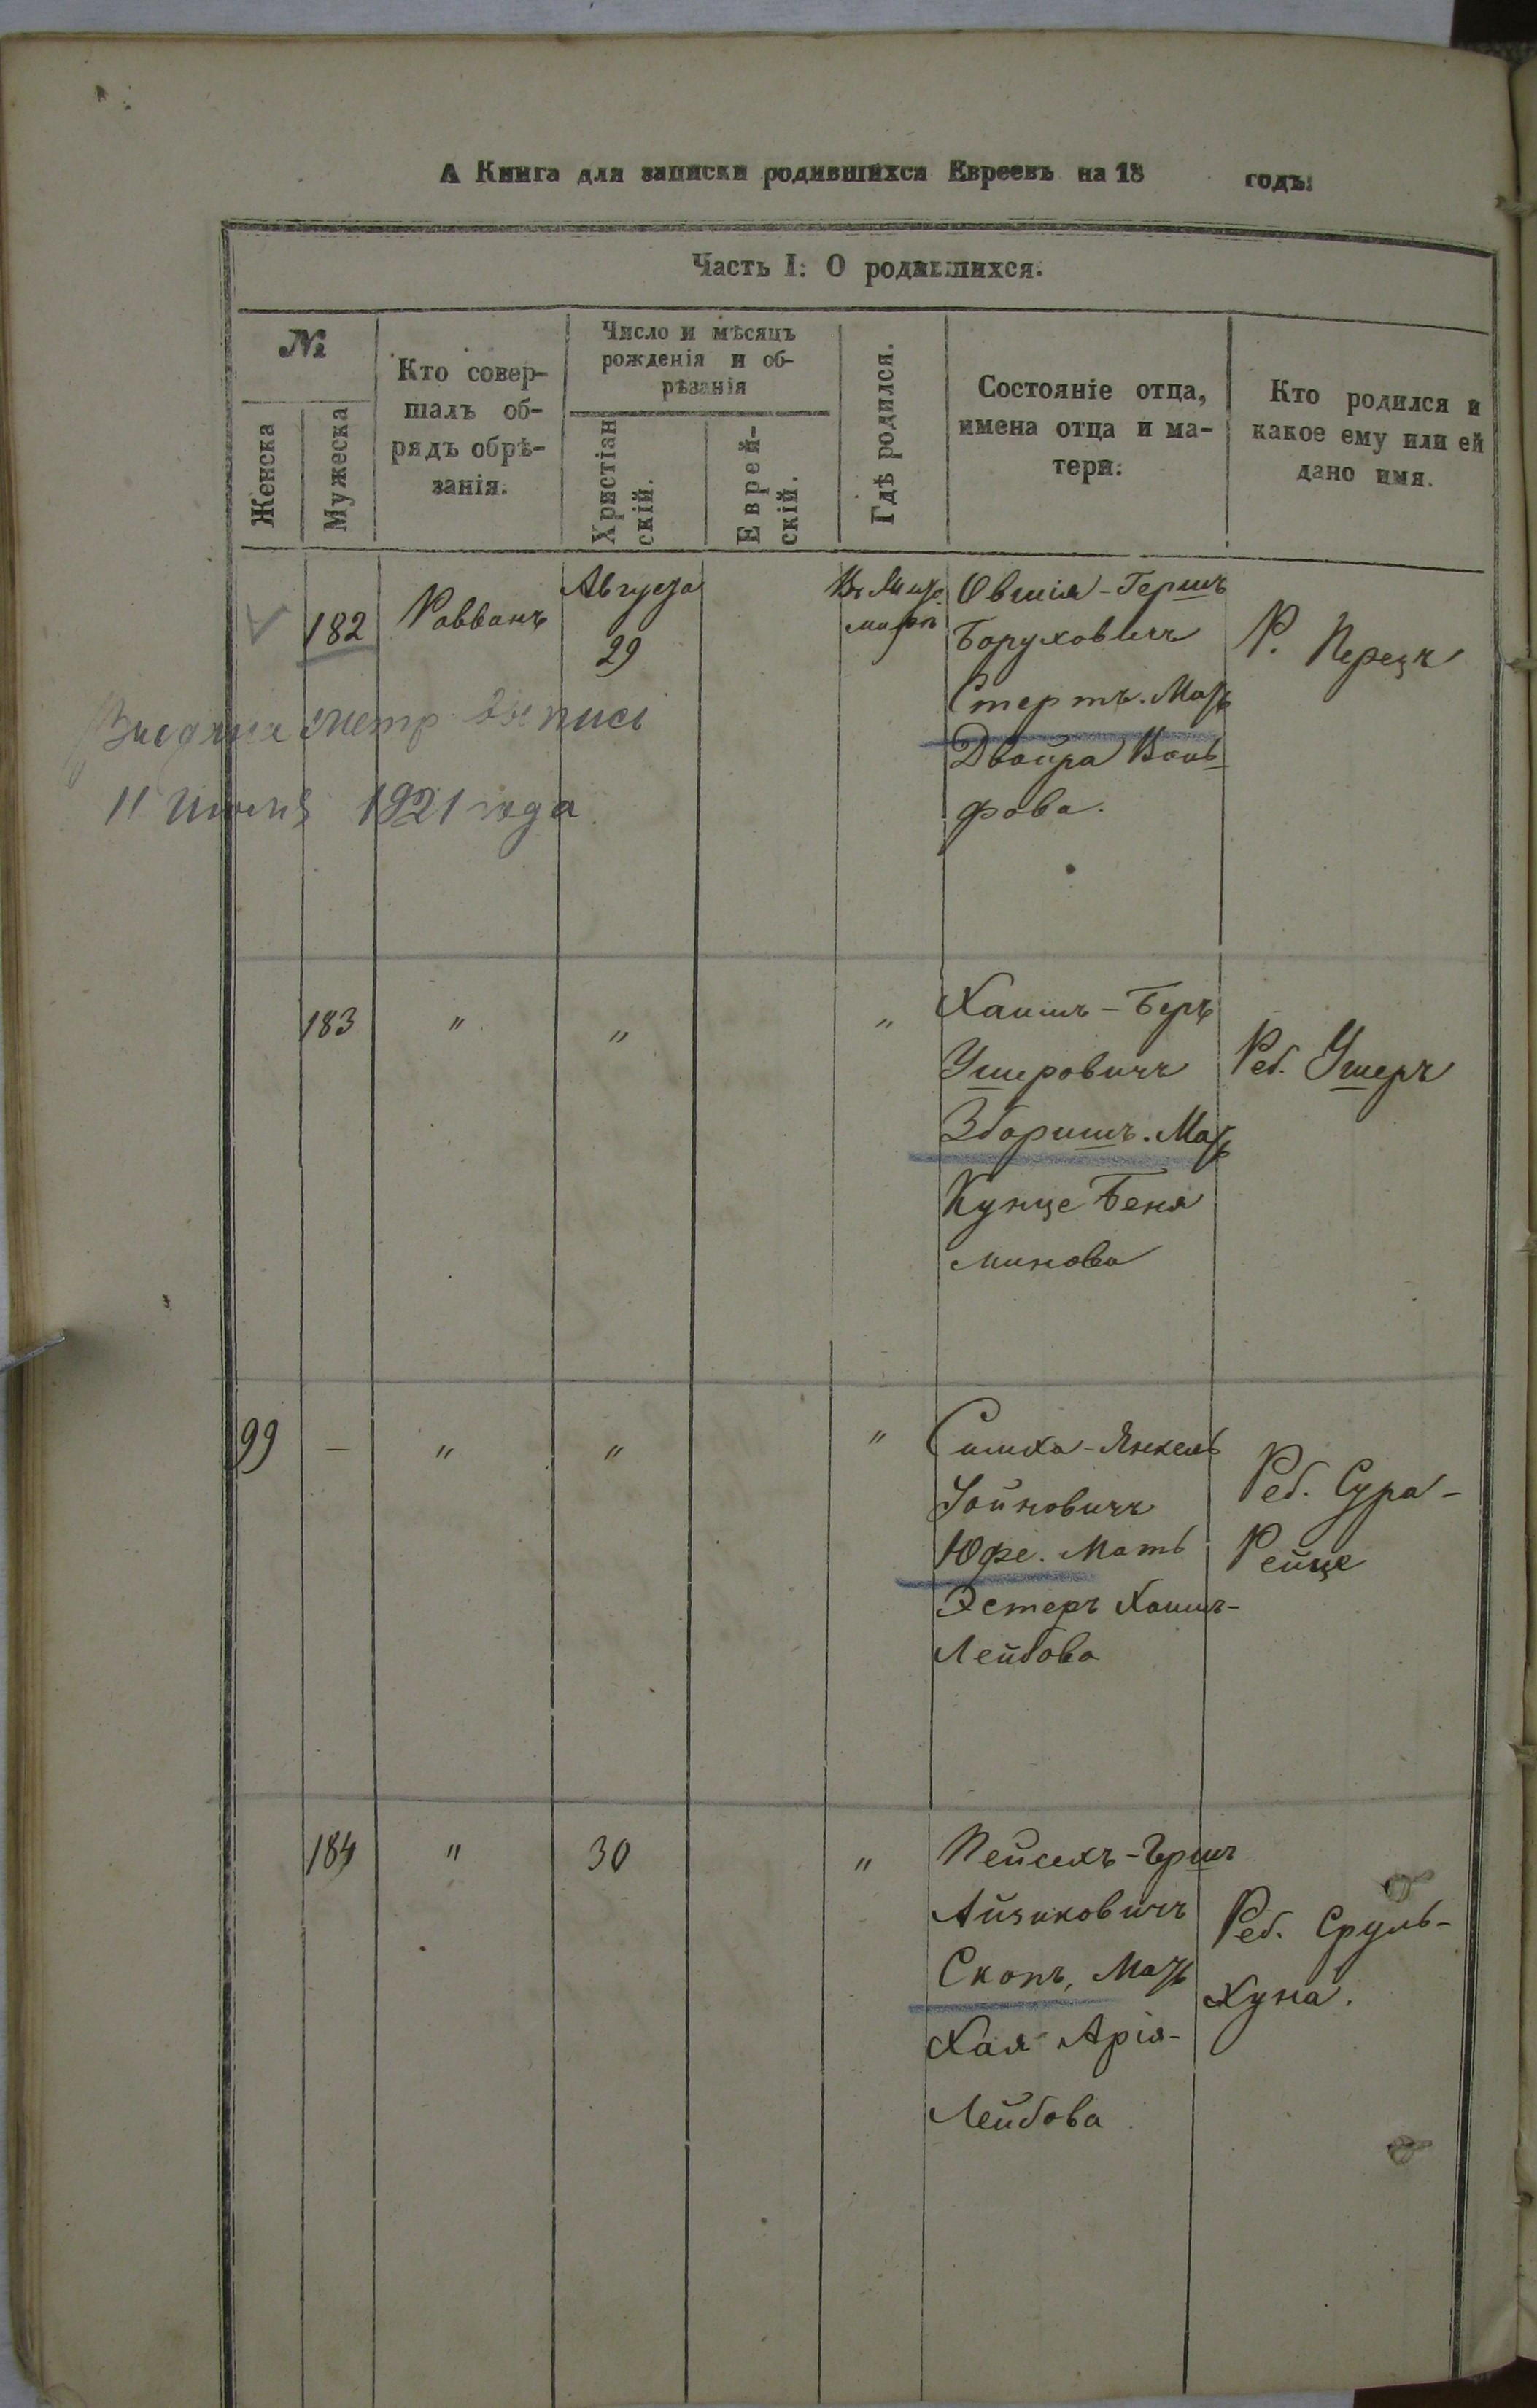 А Книга для записки родившихся Евреевъ на 18 годъ:
Часть I: О родившихся.
№
Женска
Мужеска
Кто совер-
шалъ об-
рядъ обрѣ-
занія.
Число и мѣсяцъ
рожденія и об-
рѣзанія
Христіан
скій.
Еврей-
скій.
Гдѣ родился.
Состояніе отца,
имена отца и ма-
тери:
Кто родился и
какое ему или ей
дано имя.
182
Раввинъ
Августа
29
Овшія-Гершъ
Боруховичъ
Стертъ. Мать
Двойра Воль
фова.
Р. Перецъ
метр выписі
11 1921 года.
183
"
"
"
Хаимъ-Беръ
Ушеровичъ
Збаришъ. Мать
Кунце Беня
минова
Реб. Ушеръ
99
—
"
"
"
Симха-Янкель
Іойновичъ
Юфе. Мать
Эстеръ Хаимъ-
Лейбова
Реб. Сура-
Рейце
184
"
30
"
Пейсехъ-Гершъ
Айзиковичъ
Скопъ, Мать
Хая Арія-
Лейбова
Реб. Сруль-
Хуна.